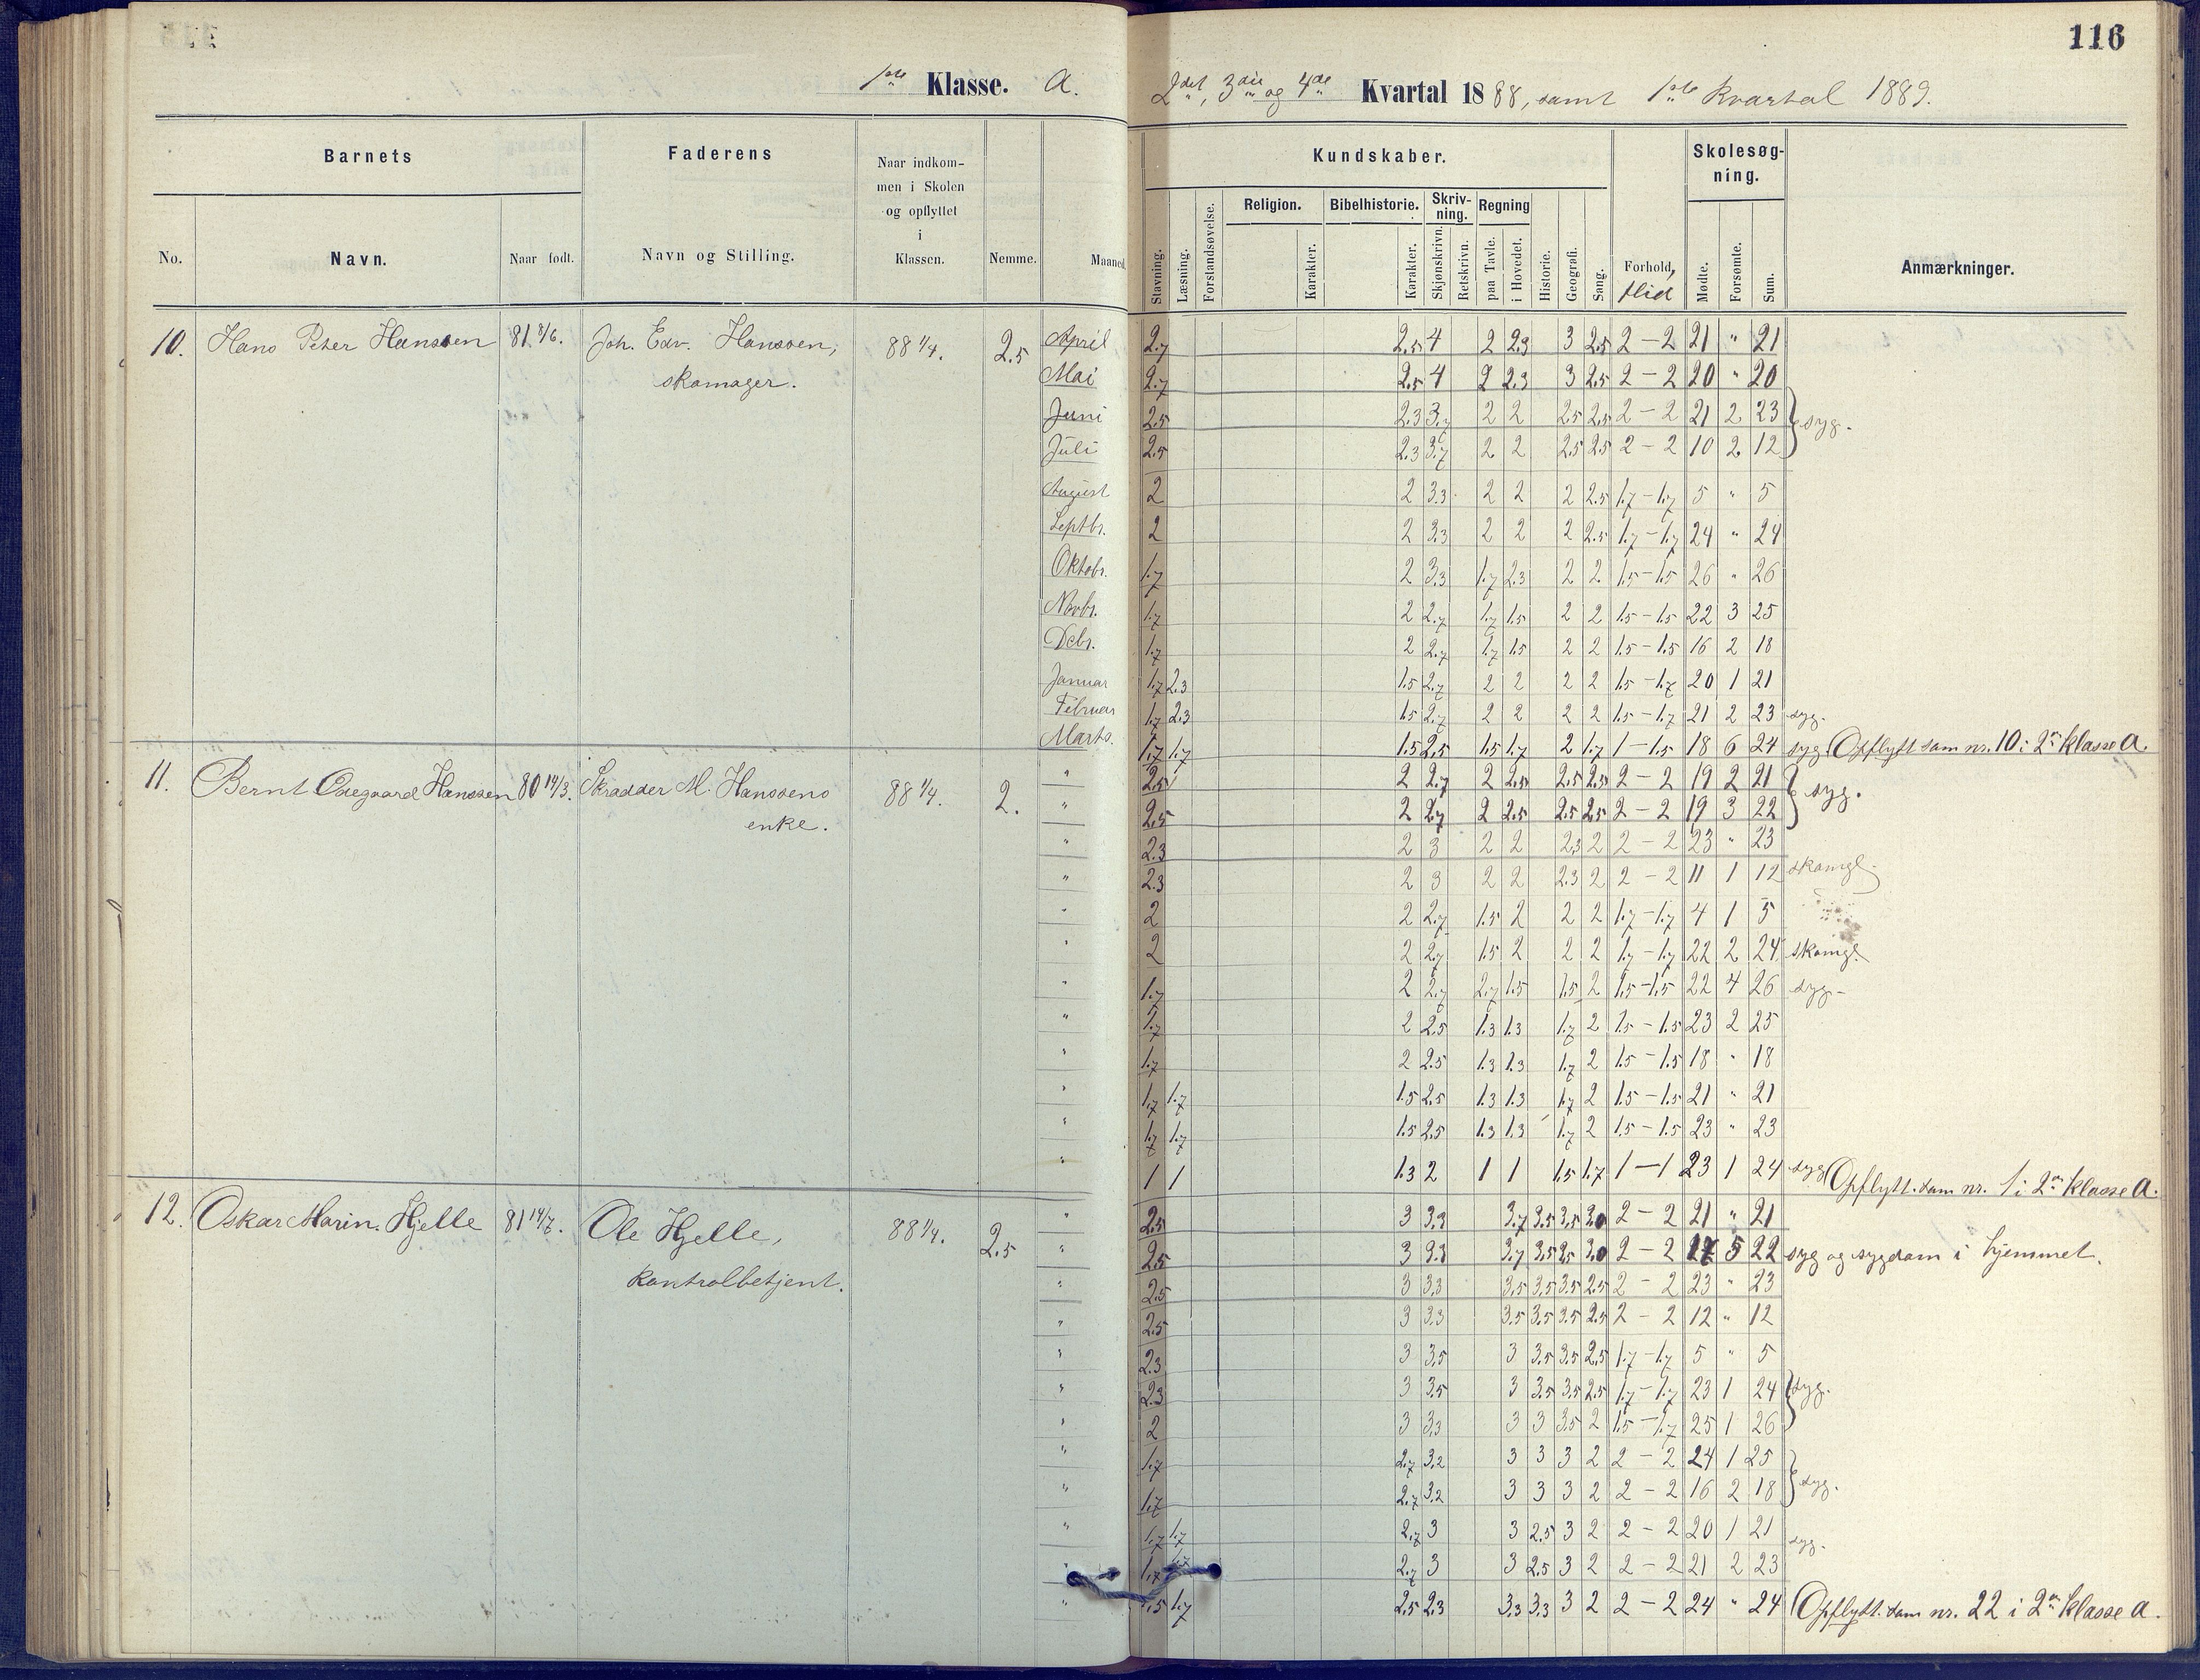 116
1ste Klasse. A.
2det, 3die og 4de Kvartal 1888, samt 1ste Kvartal 1889.
Barnets
Faderens
Naar indkom-
men i Skolen
og opflyttet
i
Klassen.
Nemme.
Maaned.
No.
Navn.
Naar født.
Navn og Stilling.
Kundskaber.
Skolesøg-
ning.
Stavning.
Læsning.
Forstandsøvelse.
Religion.
Karakter.
Bibelhistorie.
Karakter.
Skriv-
ning.
Skjønskrivn.
Retskrivn.
Regning
paa Tavle.
i Hovedet.
Historie.
Geografi.
Sang.
Forhold,
flid
Mødte.
Forsømte.
Sum.
Anmærkninger.
10. Hans Peter Hanssen 81 8/6. Joh. Edv. Hanssen, 88 1/4. 2.5 April 2.7 2.5 4 2 2.3 3 2.5 2 - 2 21 " 21
skomager. Mai 2.7 2.5 4 2 2.3 3 2.5 2 - 2 20 " 20
Juni 2.5 2.3 3.7 2 2 2.5 2.5 2 - 2 21 2 23 syg.
Juli 2.5 2.3 3.7 2 2 2.5 2.5 2 - 2 10 2 12
August 2 2 3.3 2 2 2 2.5 1.7 - 1.7 5 " 5
Septbr. 2 2 3.3 2 2 2 2.5 1.7 - 1.7 24 " 24
Oktobr. 1.7 2 3.3 1.7 2.3 2 2 1.5 - 1.5 26 " 26
Novbr. 1.7 2 2.7 1.7 1.5 2 2 1.5 - 1.5 22 3 25
Decbr. 1.7 2 2.7 1.7 1.5 2 2 1.5 - 1.5 16 2 18
Januar 1.7 2.3 1.5 2.7 2 2 2 2 1.5 - 1.7 20 1 21
Februar 1.7 2.3 1.5 2.7 2 2 2 2 1.5 - 1.7 21 2 23 syg.
Marts. 1.7 1.7 1.5 2.5 1.5 1.7 2 1.7 1 - 1.5 18 6 24 syg. Opflytt. som nr. 10 i 2n klasse A.
11. Bernt Odegaard Hanssen 80 14/3. Skrædder M. Hanssens 88 1/4. 2. " 2.5 2 2.7 2 2.5 2.5 2.5 2 - 2 19 2 21 syg.
enke. " 2.5 2 2.7 2 2.5 2.5 2.5 2 - 2 19 3 22
" 2.3 2 3 2 2 2.3 2 2 - 2 23 " 23
" 2.3 2 3 2 2 2.3 2 2 - 2 11 1 12 skomgl.
" 2 2 2.7 1.5 2 2 2 1.7 - 1.7 4 1 5
" 2 2 2.7 1.5 2 2 2 1.7 - 1.7 22 2 24 skomgl.
" 1.7 2 2.7 2.7 1.5 1.5 2 1.5 - 1.5 22 4 26 syg.
" 1.7 2 2.5 1.3 1.3 1.7 2 1.5 - 1.5 23 2 25
" 1.7 2 2.5 1.3 1.3 1.7 2 1.5 - 1.5 18 " 18
" 1.7 1.7 1.5 2.5 1.3 1.3 1.7 2 1.5 - 1.5 21 " 21
" 1.7 1.7 1.5 2.5 1.3 1.3 1.7 2 1.5 - 1.5 23 " 23
" 1 1 1.3 2 1 1 1.5 1.7 1 - 1 23 1 24 syg. Opflytt. som nr. 1 i 2n klasse A.
12. Oskar Marin. Hjelle 81 14/7. Ole Hjelle, 88 1/4. 2.5 " 2.5 3 3.3 3.7 3.5 3.5 3.0 2 - 2 21 " 21
" 2.5 3 3.3 3.7 3.5 2.5 3.0 2 - 2 17 5 22 syg og sygdom i hjemmet.
kontrolbetjent. " 2.5 3 3.3 3.5 3.5 3.5 2.5 2 - 2 23 " 23
" 2.5 3 3.3 3.5 3.5 3.5 2.5 2 - 2 12 " 12
" 2.3 3 3.5 3 3.5 3.5 2.5 1.7 - 1.7 5 " 5
" 2.3 3 3.5 3 3.5 3.5 2.5 1.7 - 1.7 23 1 24 syg.
" 2 3 3.3 3 3 3.5 2 1.5 - 1.7 25 1 26
" 1.7 2.7 3.2 3 3 3 2 2 - 2 24 1 25
" 1.7 2.7 3.2 3 3 3 2 2 - 2 16 2 18 syg.
" 1.7 1.7 2.7 3 3 2.5 3 2 2 - 2 20 1 21 syg.
" 1.7 1.7 2.7 3 3 2.5 3 2 2 - 2 21 2 23
" 1.5 1.7 2.5 2.3 3.3 3.3 3 2 2 - 2 24 " 24 Opflytt. som nr. 22 i 2n klasse A.